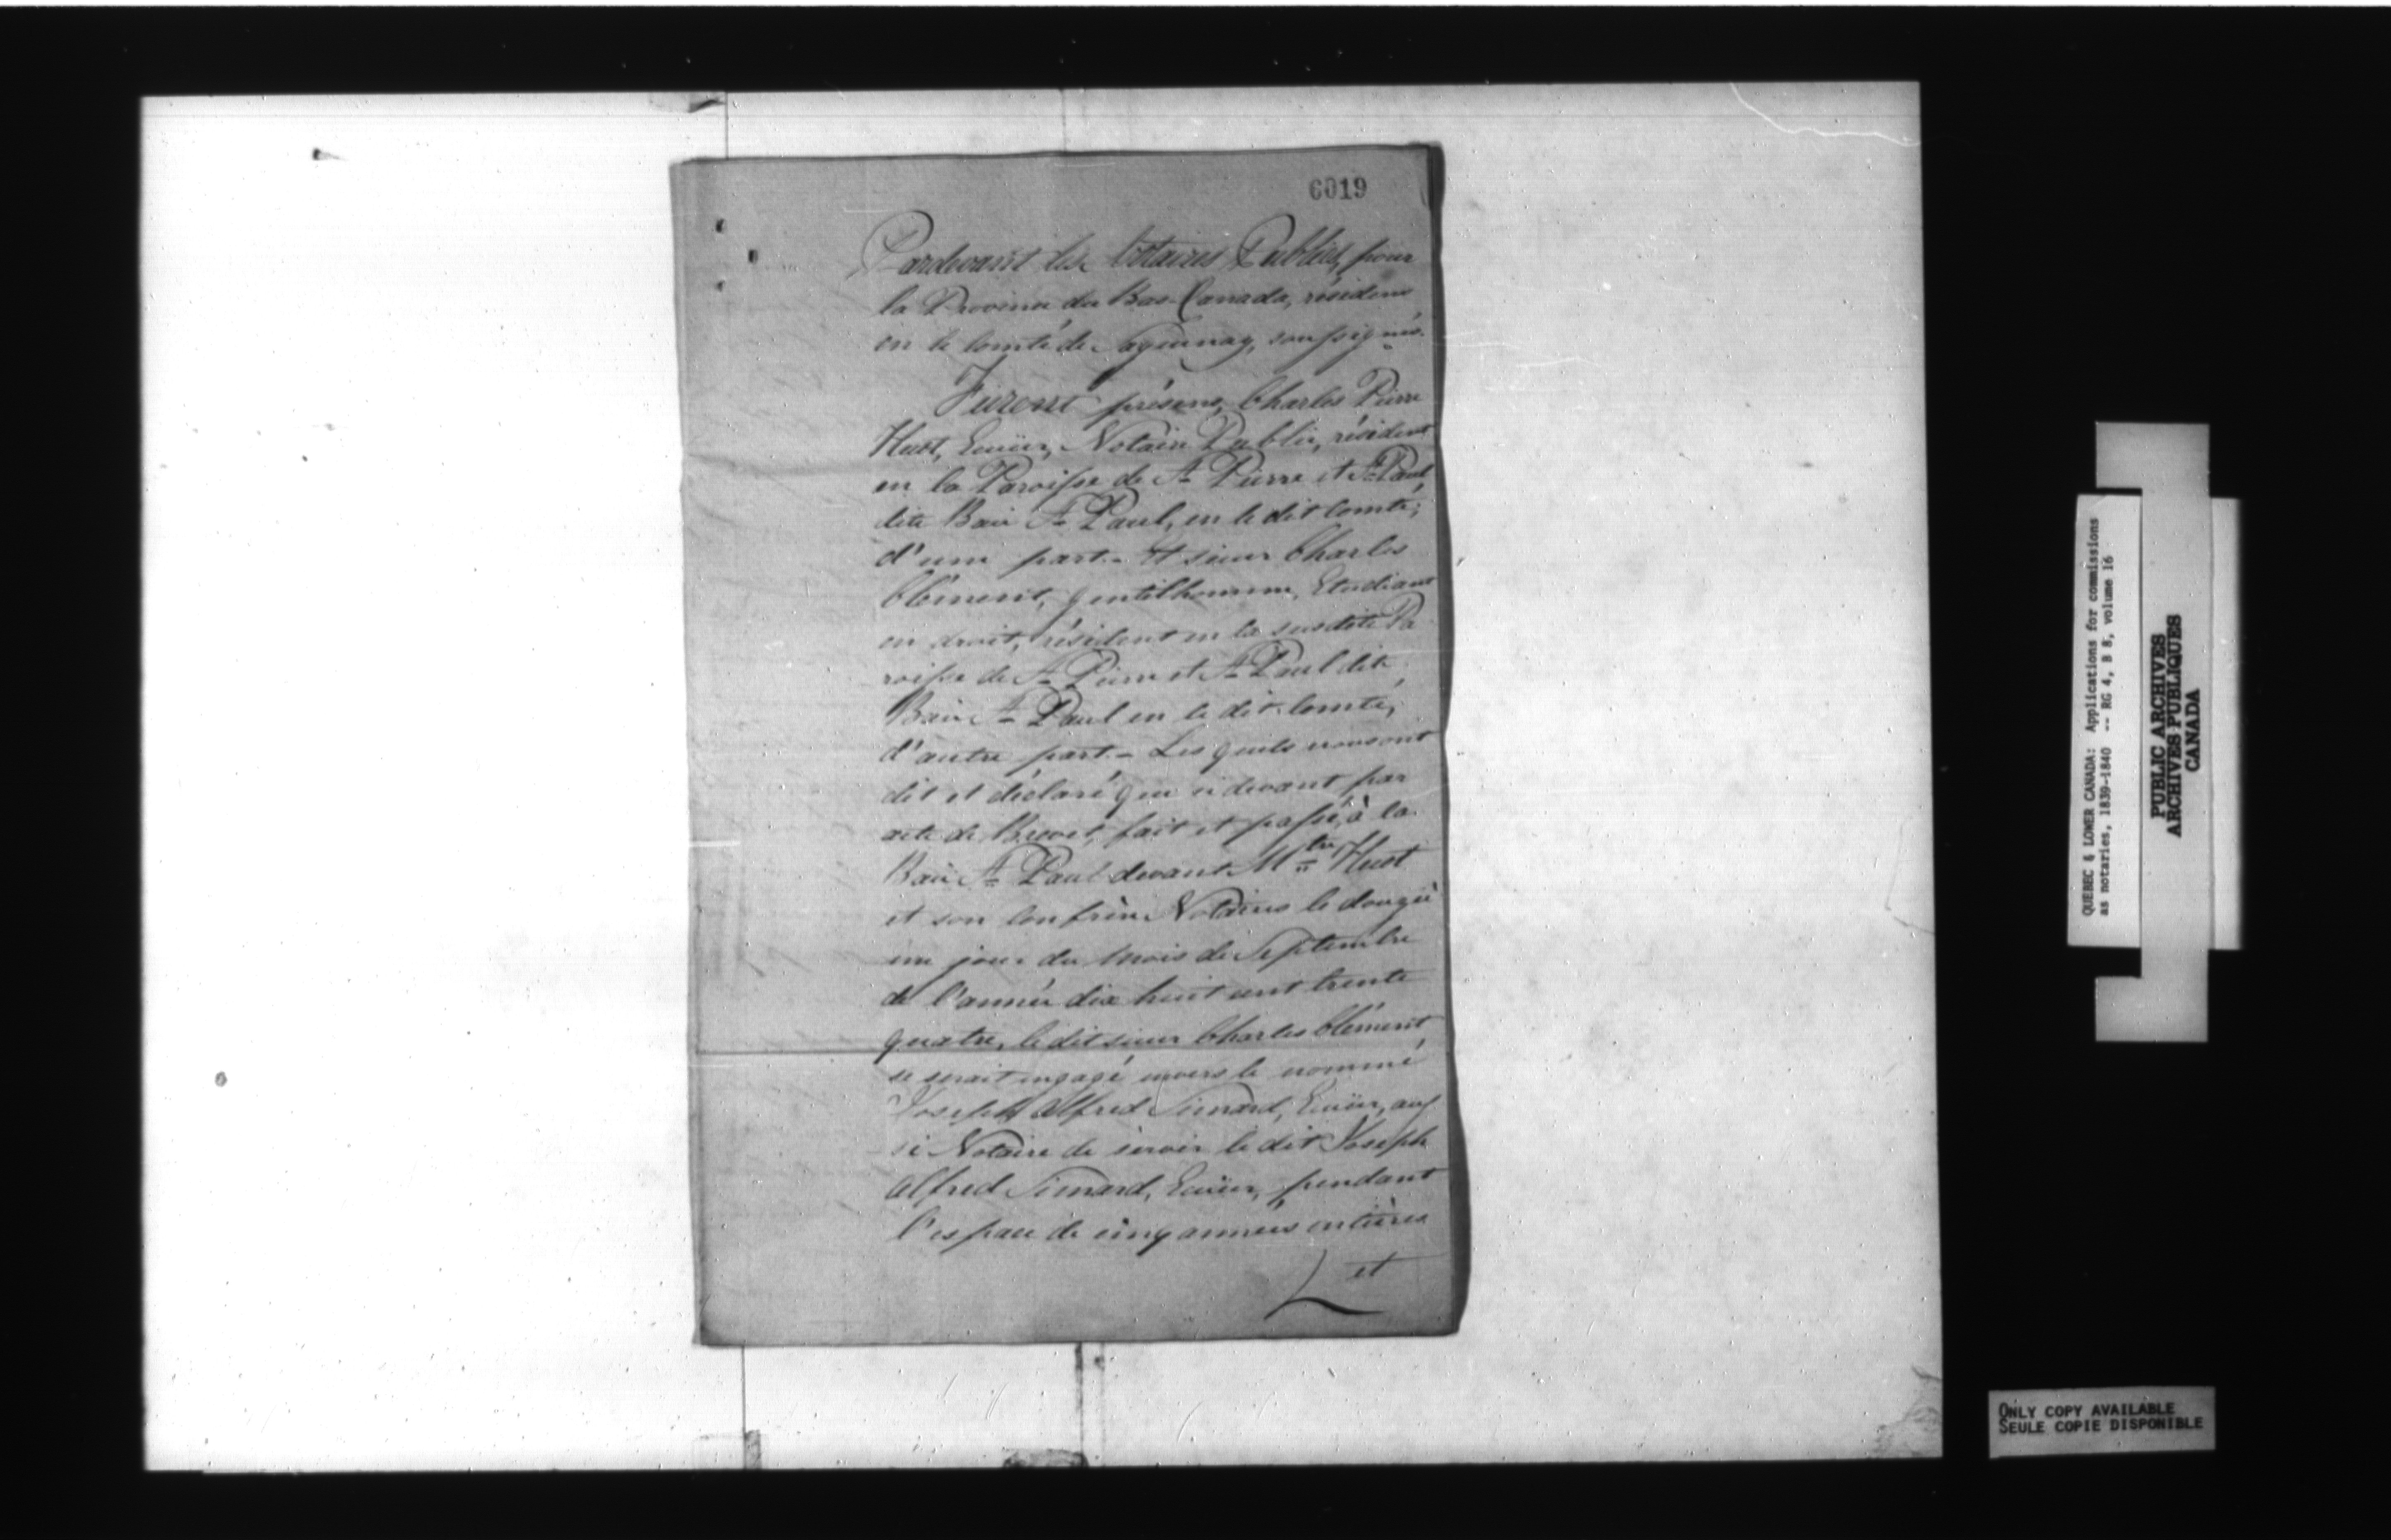 6019
Pardevant les Notaires Publics, pour
la Province du Bas-Canada, résidens
en le Comté de Saguenay, soussignés.
Furent présens, Charles Pierre
Huot, Ecuïer, Notaire Public, résident
en la Paroisse de St Pierre et St Paul,
dite Baie St Paul, en le dit Comté;
d'une part.- Et sieur Charles
Clément, Gentilhomme, Etudiant
en droit, résident en la susdite Pa
roisse de St Pierre et St Paul dite
Baie St Paul en le dit Comté,
d'autre part.- Les quels nous ont
dit et déclaré que ci devant par
acte de Brevet, fait et passé, à la
Baie St Paul devant Mtre Huot
et son Confrère Notaires le douziè
me jour du mois de Septembre
de l'année dix huit cent trente
quatre, le dit sieur Charles Clément
se serait engagé envers le nommé
Joseph Alfred Simard, Ecuïer, aus
si Notaire de servir le dit Joseph
Alfred Simard, Ecuïer, pendant
l'espace de cinq années entières
et
QUEBEC & LOWER CANADA: Applications for commissions
as notaries, 1839-1840 -- RG 4, B 8, volume 16
PUBLIC ARCHIVES
ARCHIVES PUBLIQUES
CANADA
ONLY COPY AVAILABLE
SEULE COPIE DISPONIBLE